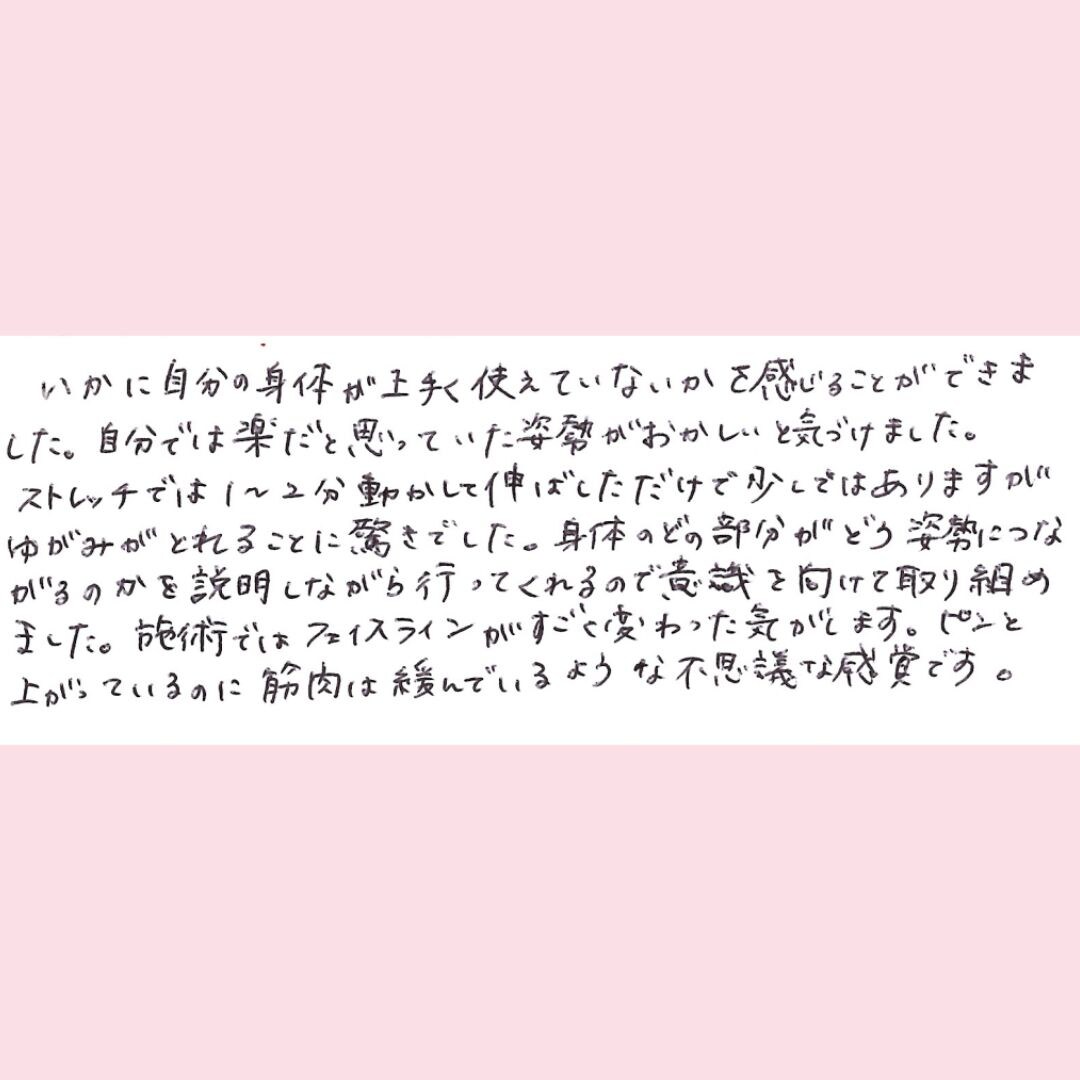 いかに自分の身体が上手く使えていないかを感じることができま
した。自分では楽だと思っていた姿勢がおかしいと気づけました。
ストレッチでは1〜2分動かして伸ばしただけで少しではありますが
ゆがみがとれることに驚きでした。身体のどの部分がどう姿勢につな
がるのかを説明しながら行ってくれるので意識を向けて取り組め
ました。施術ではフェイスラインがすごく変わった気がします。ピンと
上がっているのに筋肉は緩んでいるような不思議な感覚です。